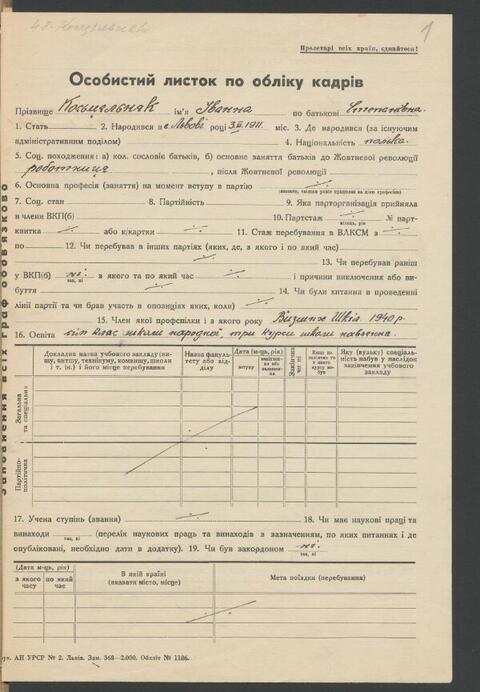 1
Пролетарі всіх країн, єднайтеся!
Особистий листок по обліку кадрів
Прізвище ім'я Іванна по батькові Степанівна.
1. Стать 2. Народився в м. Львові 3.II.1911. міс. 3. Де народився (за існуючим
адміністративним поділом) 4. Національність полька.
5. Соц. походження: а) кол. сословіє батьків, б) основне заняття батьків до Жовтневої революції
роботниця, після Жовтневої революції
6. Основна професія (заняття) на момент вступу в партію
7. Соц. стан 8. Партійність 9. Яка парторганізація прийняла
в члени ВКП(б) 10. Партстаж № парт-
місяць, рік
квитка або к/картки 11. Стаж перебування в ВЛКСМ з
по 12. Чи перебував в інших партіях (яких, де, з якого і по який час)
13. Чи перебував раніш
у ВКП(б) ні. з якого та по який час і причини виключення або ви-
так, ні
буття 14. Чи були хитання в проведенні
лінії партії та чи брав участь в опозиціях яких, коли)
15. Член якої профспілки і з якого року Вищих Шкіл 1940 р.
16. Освіта сім клас школи народної, три курси школи
Заповнення всіх граф обов'язково
Докладна назва учбового закладу (ви-
шу, втузу, технікуму, комвишу, школи
і т. ін.) і його місце перебування
Назва факуль-
тету або від-
ділу
Дата (м-ць, рік)
вступу
Закінчив
чи ні
Яку (вузьку) спеціаль-
ність набув у наслідок
закінчення учбового
закладу
Загальна
та спеціальна
Партійно-
політична
17. Учена ступінь (звання) 18. Чи має наукові праці та
винаходи (перелік наукових праць та винаходів з зазначенням, по яких питаннях і де
так, ні
опубліковані, необхідно дати в додатку). 19. Чи був закордоном ні.
так, ні
(Дата м-ць, рік)
з якого
часу
по який
час
В якій країні
(вказати місто, місце)
Мета поїздки (перебування)
АН УРСР № 2. Львів. Зам. 368—2.000. Обліт № 1186.